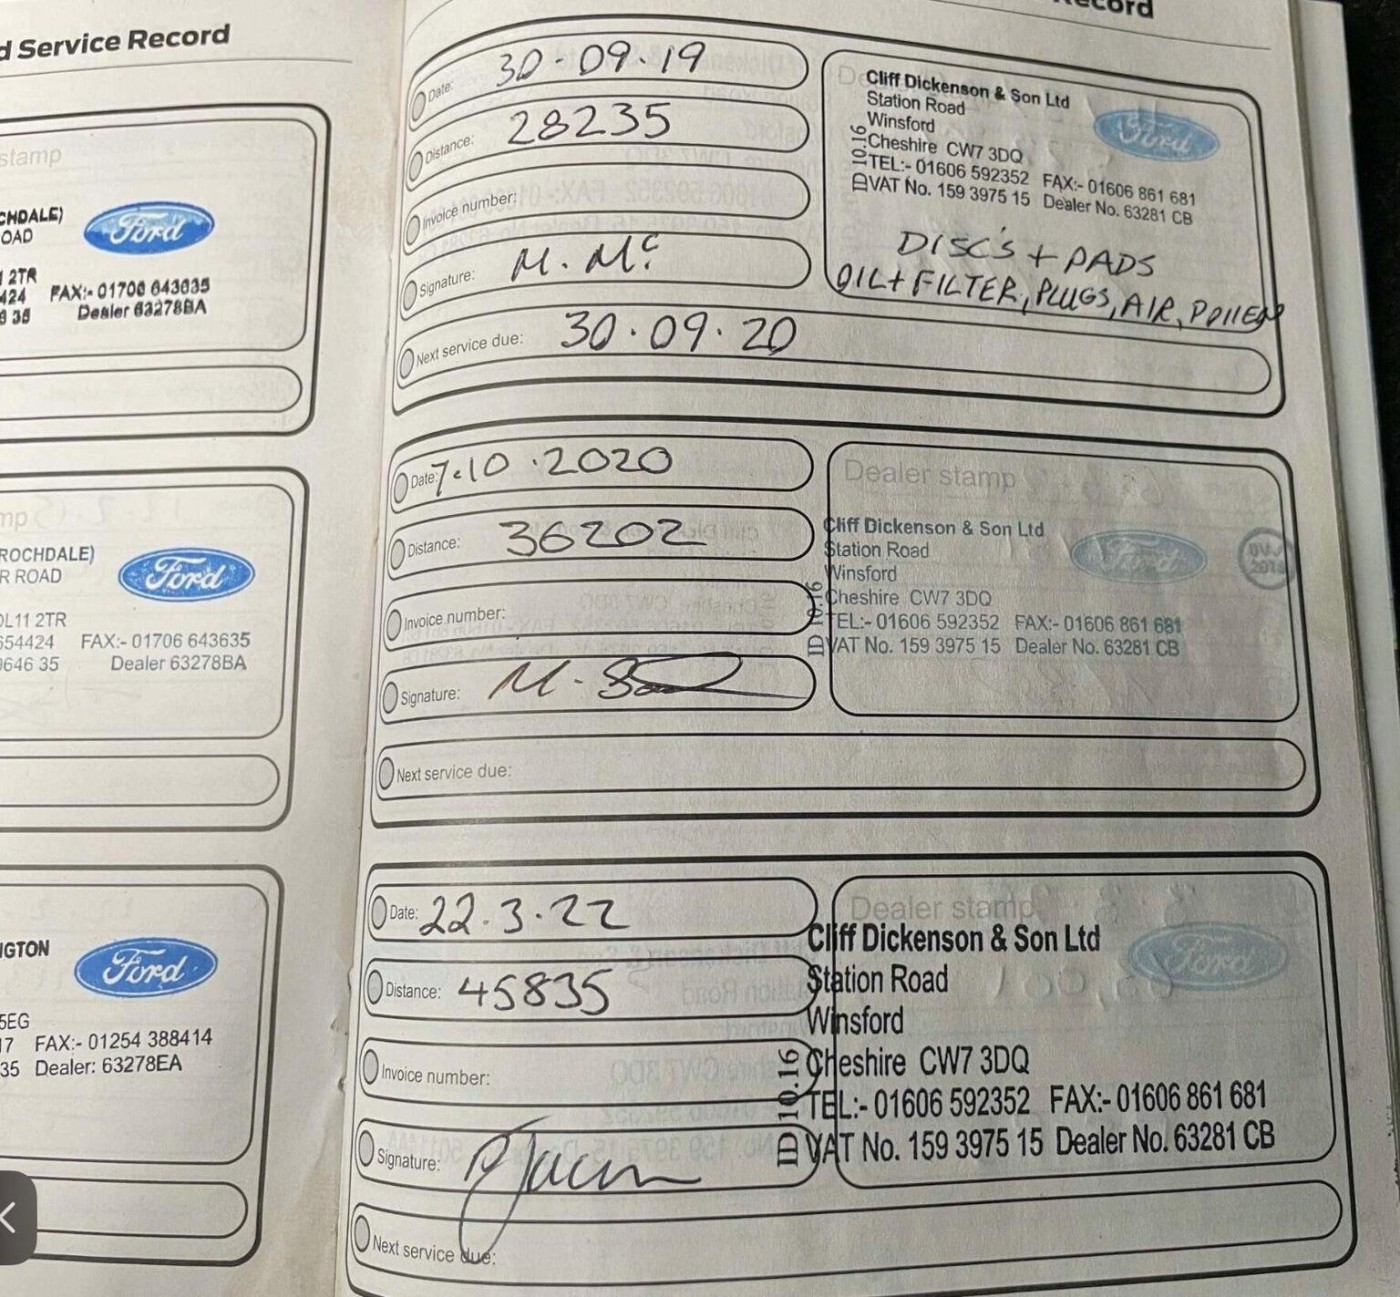 d Service Record
stamp
CHDALE)
OAD
Ford
1 2TR
424 FAX:- 01706 643635
6 35 Dealer 63278BA
mp
ROCHDALE)
R ROAD
Ford
OL11 2TR
654424 FAX:- 01706 643635
9646 35 Dealer 63278BA
NGTON
Ford
5EG
17 FAX:- 01254 388414
35 Dealer: 63278EA
Record
Date: 30.09.19
Distance: 28235
Invoice number:
Signature: M. Mc
Next service due: 30.09.20
Cliff Dickenson & Son Ltd
Station Road
Winsford
Cheshire CW7 3DQ
TEL:- 01606 592352 FAX:- 01606 861 681
VAT No. 159 3975 15 Dealer No. 63281 CB
ID 10.16
Ford
DISC'S + PADS
OIL + FILTER, PLUGS, AIR, POLLEN
Date: 7.10.2020
Distance: 36202
Invoice number:
Signature: M.
Next service due:
Dealer stamp
Cliff Dickenson & Son Ltd
Station Road
Winsford
Cheshire CW7 3DQ
TEL:- 01606 592352 FAX:- 01606 861 681
VAT No. 159 3975 15 Dealer No. 63281 CB
ID 10.16
Ford
Date: 22.3.22
Distance: 45835
Invoice number:
Signature:
Next service due:
Dealer stamp
Cliff Dickenson & Son Ltd
Station Road
Winsford
Cheshire CW7 3DQ
TEL:- 01606 592352 FAX:- 01606 861 681
VAT No. 159 3975 15 Dealer No. 63281 CB
ID 10.16
Ford